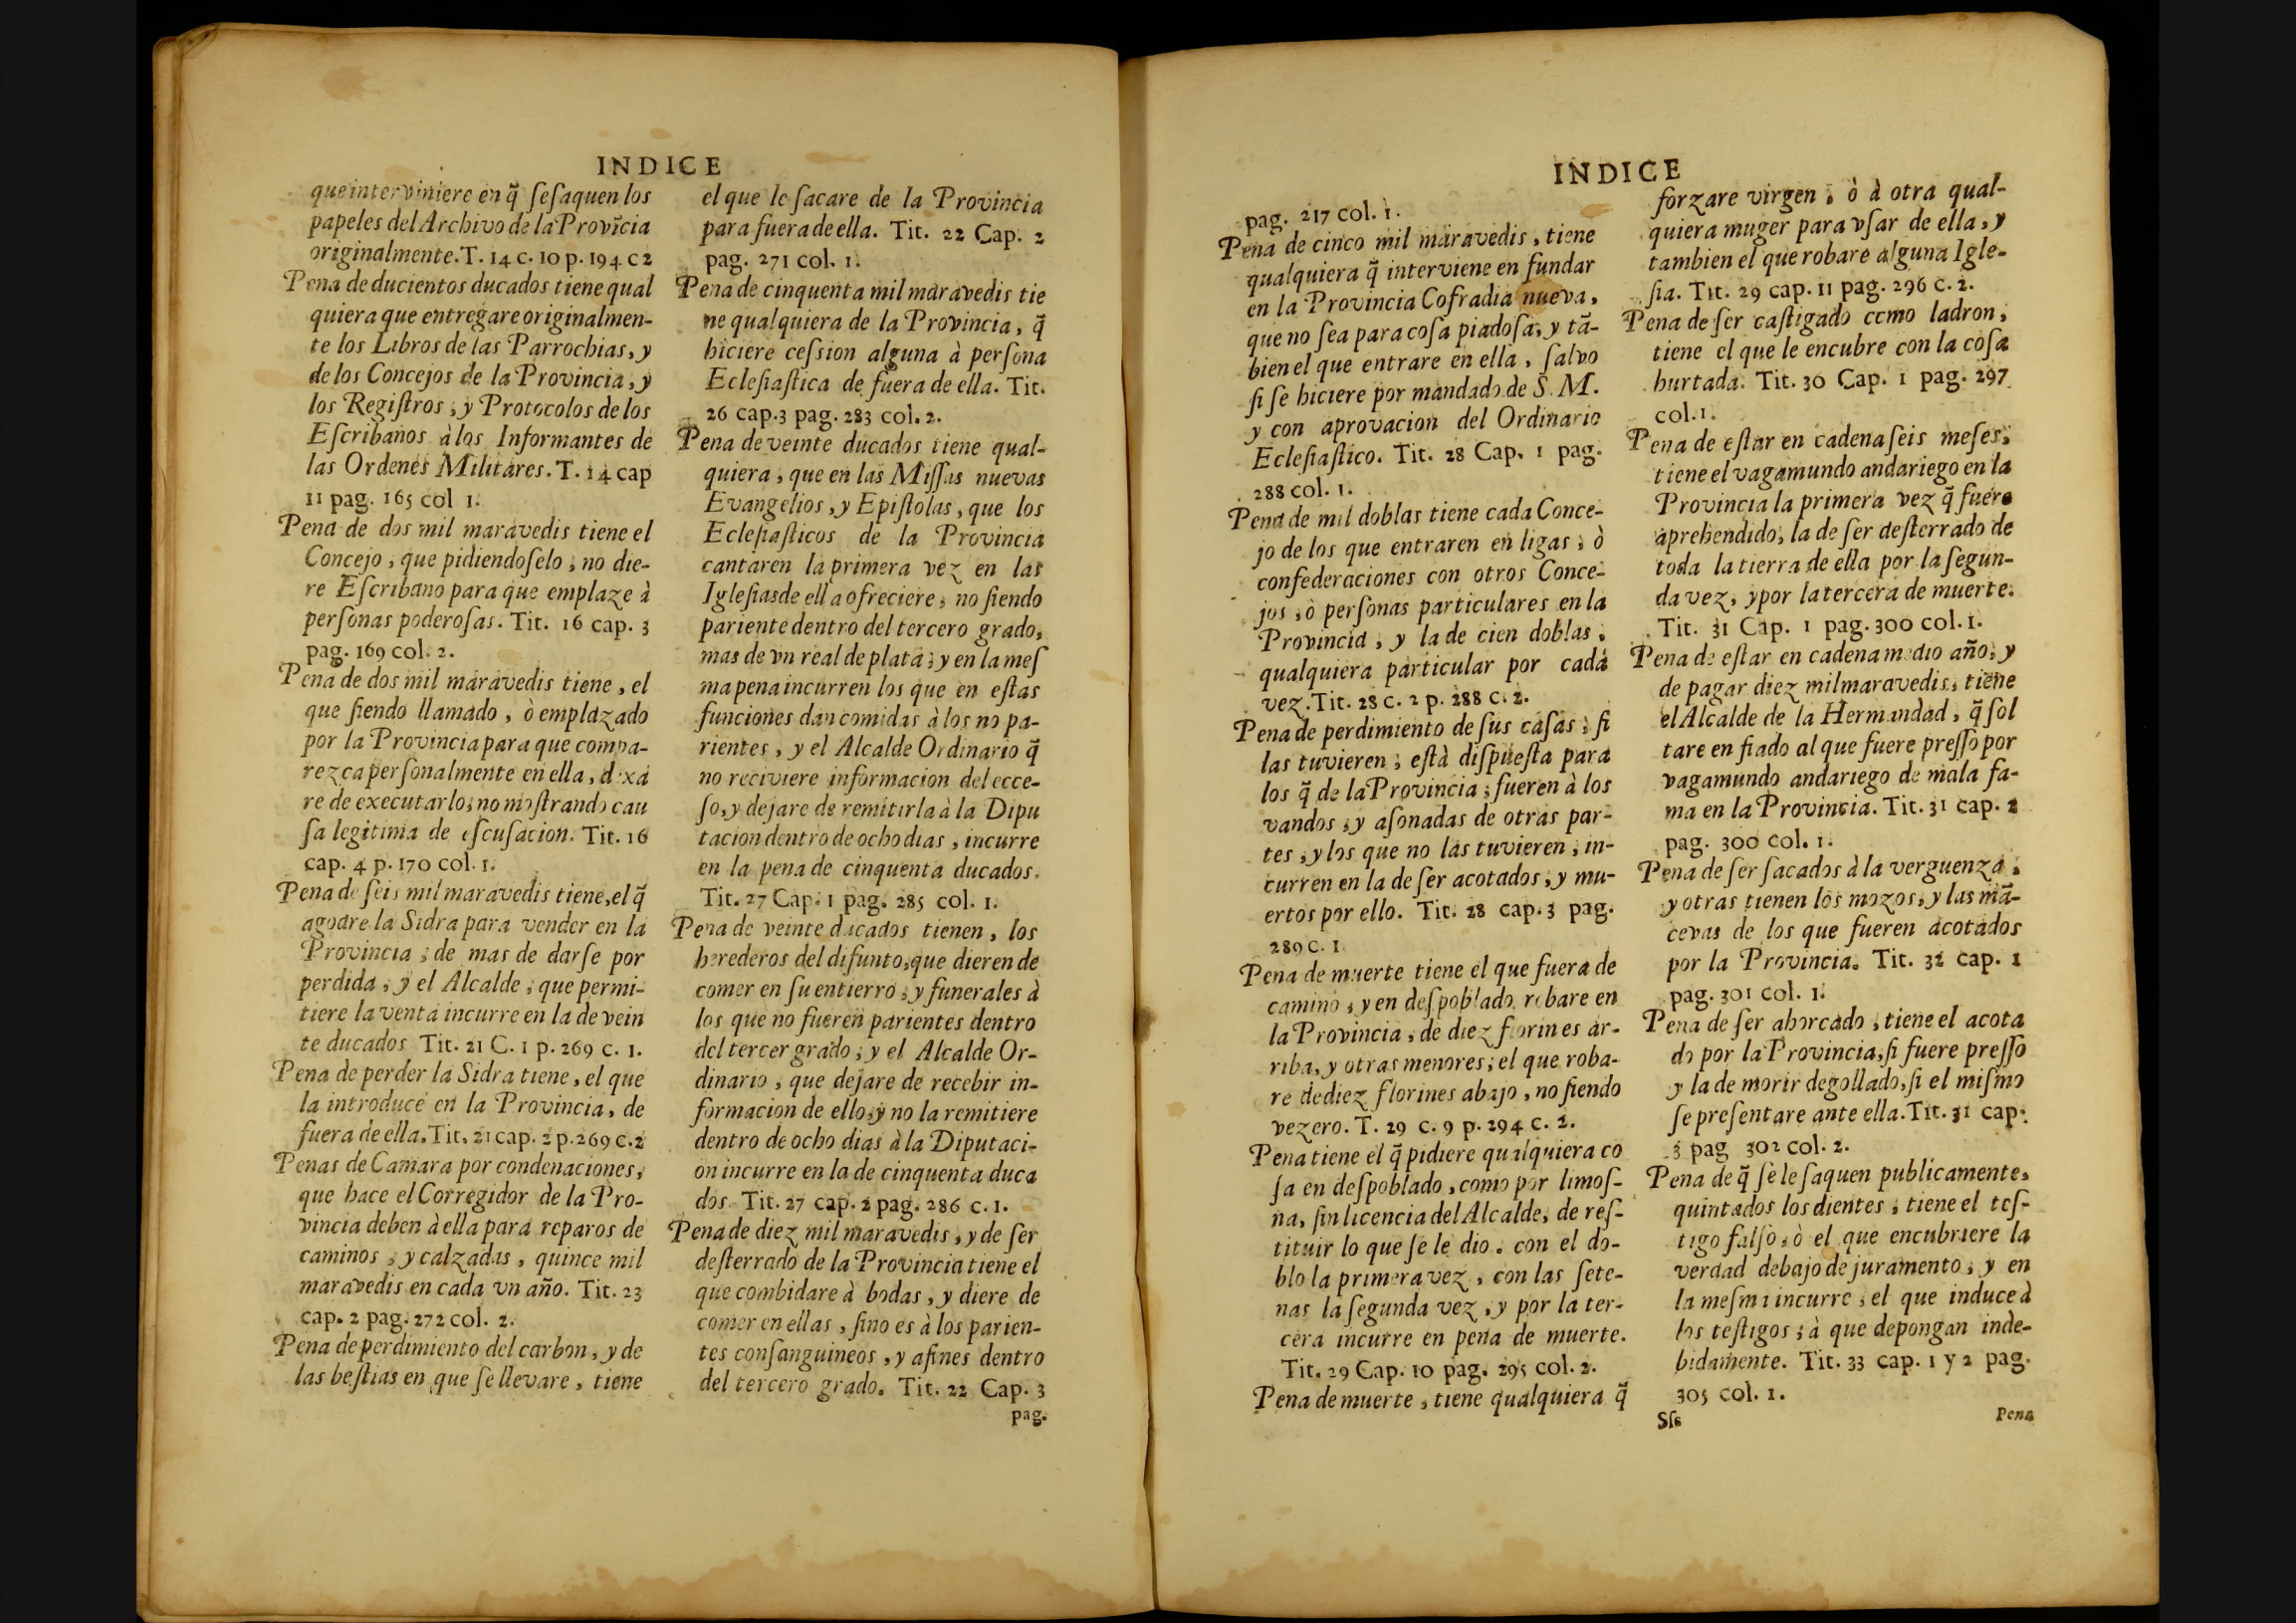 INDICE
que interviniere en q̃ ſe ſaquen los
papeles del Archivo de la Provĩcia
originalmente. T. 14 c. 10 p. 194 c 2
Pena de ducientos ducados tiene qual
quiera que entregare originalmen-
te los Libros de las Parrochias, y
de los Concejos de la Provincia, y
los Regiſtros, y Protocolos de los
Eſcribanos à los Informantes de
las Ordenes Militares. T. 14 cap
11 pag. 165 col 1.
Pena de dos mil maravedis tiene el
Concejo, que pidiendoſelo, no die-
re Eſcribano para que emplaze à
perſonas poderoſas. Tit. 16 cap. 3
pag. 169 col. 2.
Pena de dos mil maravedis tiene, el
que ſiendo llamado, ò emplazado
por la Provincia para que compa-
rezca perſonalmente en ella, dexa
re de executarlo, no moſtrando cau
ſa legitima de eſcuſacion. Tit. 16
cap. 4 p. 170 col. 1.
Pena de ſeis mil maravedis tiene, el q̃
agoare la Sidra para vender en la
Provincia, de mas de darſe por
perdida, y el Alcalde, que permi-
tiere la venta incurre en la de vein
te ducados Tit. 21 C. 1 p. 269 c. 1.
Pena de perder la Sidra tiene, el que
la introduce en la Provincia, de
fuera de ella. Tit. 21 cap. 2 p. 269 c. 2
Penas de Camara por condenaciones,
que hace el Corregidor de la Pro-
vincia deben à ella para reparos de
caminos, y calzadas, quince mil
maravedis en cada vn año. Tit. 23
cap. 2 pag. 272 col. 2.
Pena de perdimiento del carbon, y de
las beſtias en que ſe llevare, tiene
el que le ſacare de la Provincia
para fuera de ella. Tit. 22 Cap. 2
pag. 271 col. 1.
Pena de cinquenta mil maravedis tie
ne qualquiera de la Provincia, q̃
hiciere ceſsion alguna à perſona
Ecleſiaſtica de fuera de ella. Tit.
26 cap. 3 pag. 283 col. 2.
Pena de veinte ducados tiene qual-
quiera, que en las Miſſas nuevas
Evangelios, y Epiſtolas, que los
Ecleſiaſticos de la Provincia
cantaren la primera vez en las
Igleſias de ella ofreciere, no ſiendo
pariente dentro del tercero grado,
mas de vn real de plata; y en la meſ
ma pena incurren los que en eſtas
funciones dan comidas à los no pa-
rientes, y el Alcalde Ordinario q̃
no reciviere informacion del ecce-
ſo, y dejare de remitirla à la Dipu
tacion dentro de ocho dias, incurre
en la pena de cinquenta ducados.
Tit. 27 Cap. 1 pag. 285 col. 1.
Pena de veinte ducados tienen, los
herederos del difunto, que dieren de
comer en ſu entierro, y funerales à
los que no fueren parientes dentro
del tercer grado; y el Alcalde Or-
dinario, que dejare de recebir in-
formacion de ello, y no la remitiere
dentro de ocho dias à la Diputaci-
on incurre en la de cinquenta duca
dos. Tit. 27 cap. 2 pag. 286 c. 1.
Pena de diez mil maravedis, y de ſer
deſterrado de la Provincia tiene el
que combidare à bodas, y diere de
comer en ellas, ſino es à los parien-
tes conſanguineos, y afines dentro
del tercero grado. Tit. 22 Cap. 3
pag.
INDICE
pag. 217 col. 1.
Pena de cinco mil maravedis, tiene
qualquiera q̃ interviene en fundar
en la Provincia Cofradia nueva,
que no ſea para coſa piadoſa, y tã-
bien el que entrare en ella, ſalvo
ſi ſe hiciere por mandado de S. M.
y con aprovacion del Ordinario
Ecleſiaſtico. Tit. 28 Cap. 1 pag.
288 col. 1.
Pena de mil doblas tiene cada Conce-
jo de los que entraren en ligas, ò
confederaciones con otros Conce-
jos, ò perſonas particulares en la
Provincia, y la de cien doblas,
qualquiera particular por cada
vez. Tit. 28 c. 2 p. 288 c. 2.
Pena de perdimiento de ſus caſas, ſi
las tuvieren, eſtà diſpueſta para
los q̃ de la Provincia, fueren à los
vandos, y aſonadas de otras par-
tes, y los que no las tuvieren, in-
curren en la de ſer acotados, y mu-
ertos por ello. Tit. 28 cap. 3 pag.
289 c. 1
Pena de muerte tiene el que fuera de
camino, y en deſpoblado robare en
la Provincia, de diez florines ar-
riba, y otras menores; el que roba-
re de diez florines abajo, no ſiendo
vezero. T. 29 c. 9 p. 294 c. 2.
Pena tiene el q̃ pidiere qualquiera co
ſa en deſpoblado, como por limoſ-
na, ſin licencia del Alcalde, de reſ-
tituir lo que ſe le dio. con el do-
blo la primera vez, con las ſete-
nas la ſegunda vez, y por la ter-
cera incurre en pena de muerte.
Tit. 29 Cap. 10 pag. 295 col. 2.
Pena de muerte, tiene qualquiera q̃
forzare virgen, ò à otra qual-
quiera muger para vſar de ella, y
tambien el que robare alguna Igle-
ſia. Tit. 29 cap. 11 pag. 296 c. 2.
Pena de ſer caſtigado como ladron,
tiene el que le encubre con la coſa
hurtada. Tit. 30 Cap. 1 pag. 297
col. 1.
Pena de eſtar en cadena ſeis meſes,
tiene el vagamundo andariego en la
Provincia la primera vez q̃ fuere
aprehendido, la de ſer deſterrado de
toda la tierra de ella por la ſegun-
da vez, y por la tercera de muerte.
Tit. 31 Cap. 1 pag. 300 col. 1.
Pena de eſtar en cadena medio año, y
de pagar diez mil maravedis, tiene
el Alcalde de la Hermandad, q̃ ſol
tare en fiado al que fuere preſſo por
vagamundo andariego de mala fa-
ma en la Provincia. Tit. 31 cap. 2
pag. 300 col. 1.
Pena de ſer ſacados à la verguenza,
y otras tienen los mozos, y las mã-
cevas de los que fueren acotados
por la Provincia. Tit. 32 cap. 1
pag. 301 col. 1.
Pena de ſer ahorcado, tiene el acota
do por la Provincia, ſi fuere preſſo
y la de morir degollado, ſi el miſmo
ſe preſentare ante ella. Tit. 31 cap.
3 pag 302 col. 2.
Pena de q̃ ſe le ſaquen publicamente,
quintados los dientes, tiene el teſ-
tigo falſo, ò el que encubriere la
verdad debajo de juramento, y en
la meſma incurre, el que induce à
los teſtigos, à que depongan inde-
bidamente. Tit. 33 cap. 1 y 2 pag.
305 col. 1.
Sſs
Pena